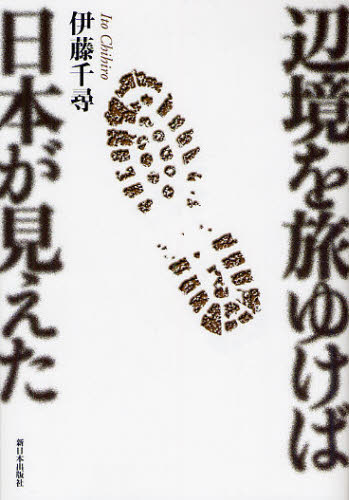 辺境を旅ゆけば
日本が見えた
伊藤千尋
Ito Chihiro
新日本出版社